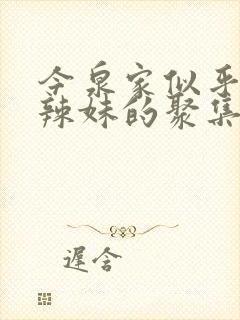 今泉家似乎
辣妹的聚集
遲含